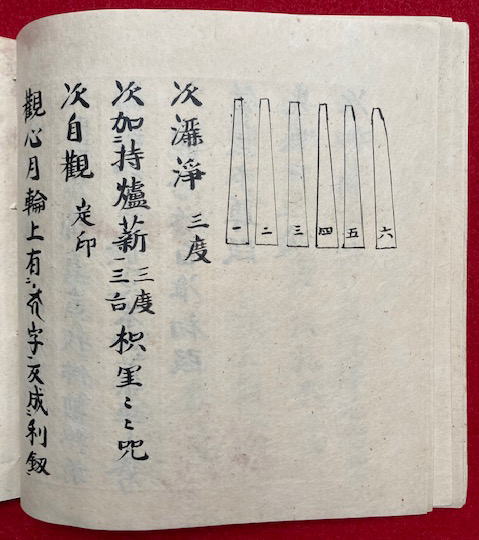 一 二 三 四 五 六
次灑淨 三度
次加持爐薪 三度 三古 枳里〻〻咒
次自觀 定印
觀心月輪上有字反成利釼